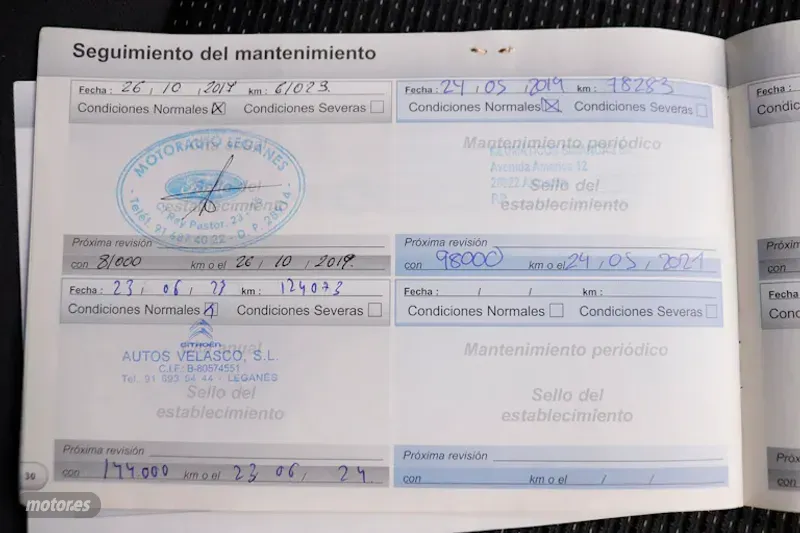 Seguimiento del mantenimiento
Fecha : 26 / 10 / 2017 km : 61023.
Condiciones Normales Condiciones Severas
MOTORAUTO LEGANÉS
Rey Pastor, 23
Telef. 91 687 40 22 - D. P. 28914
Sello del
establecimiento
Próxima revisión
con 81000 km o el 26 / 10 / 2019.
Fecha : 24 / 05 / 2019 km : 78283
Condiciones Normales Condiciones Severas
Mantenimiento periódico
Avenida
Sello del
establecimiento
Próxima revisión
con 98000 km o el 24 / 05 / 2021
Fecha : 23 / 06 / 23 km : 124073
Condiciones Normales Condiciones Severas
CITROËN
AUTOS VELASCO, S.L.
C.I.F: B-80574551
Tel. 91 693 54 44 - LEGANÉS
Sello del
establecimiento
Próxima revisión
con 144.000 km o el 23 06 / 24
Fecha : / / km :
Condiciones Normales Condiciones Severas
Mantenimiento periódico
Sello del
establecimiento
Próxima revisión
con km o el / /
30
motor.es
Fecha
Próxi
con
Fecha
con